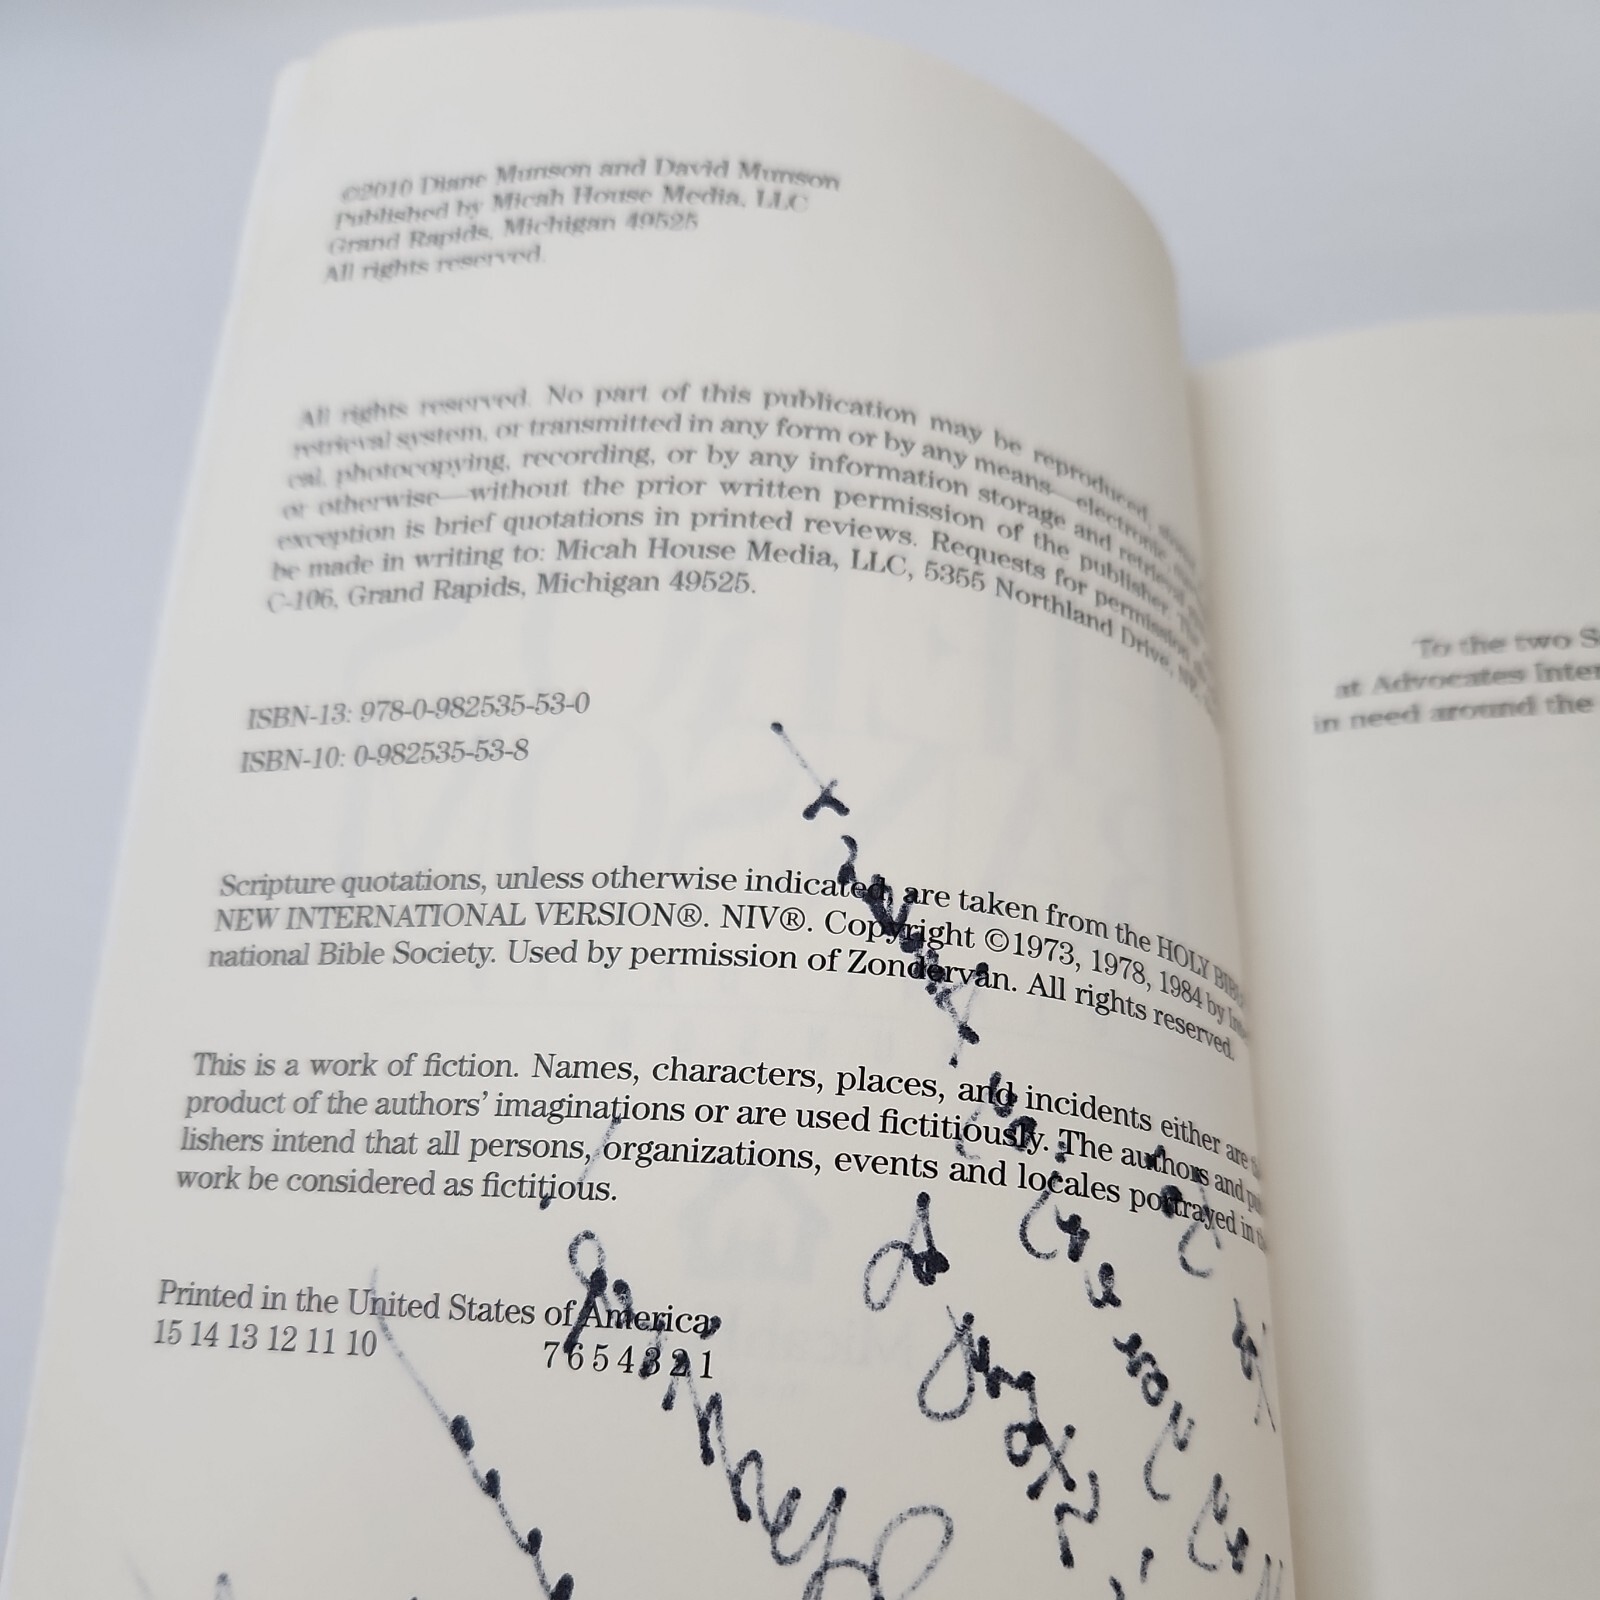 ©2010 Diane Munson and David Munson
Published by Micah House Media, LLC
Grand Rapids, Michigan 49525
All rights reserved.
All rights reserved. No part of this publication may be reproduced,
retrieval system, or transmitted in any form or by any means—electronic,
cal, photocopying, recording, or by any information storage and retrieval
or otherwise—without the prior written permission of the publisher. The
exception is brief quotations in printed reviews. Requests for permission
be made in writing to: Micah House Media, LLC, 5355 Northland Drive,
C-106, Grand Rapids, Michigan 49525.
ISBN-13: 978-0-982535-53-0
ISBN-10: 0-982535-53-8
Scripture quotations, unless otherwise indicated, are taken from the HOLY
NEW INTERNATIONAL VERSION®. NIV®. Copyright ©1973, 1978, 1984 by
national Bible Society. Used by permission of Zondervan. All rights reserved.
This is a work of fiction. Names, characters, places, and incidents either are
product of the authors' imaginations or are used fictitiously. The authors and
lishers intend that all persons, organizations, events and locales portrayed in
work be considered as fictitious.
Printed in the United States of America
15 14 13 12 11 10 7 6 5 4 3 2 1
To the two
at Advocates
in need around the